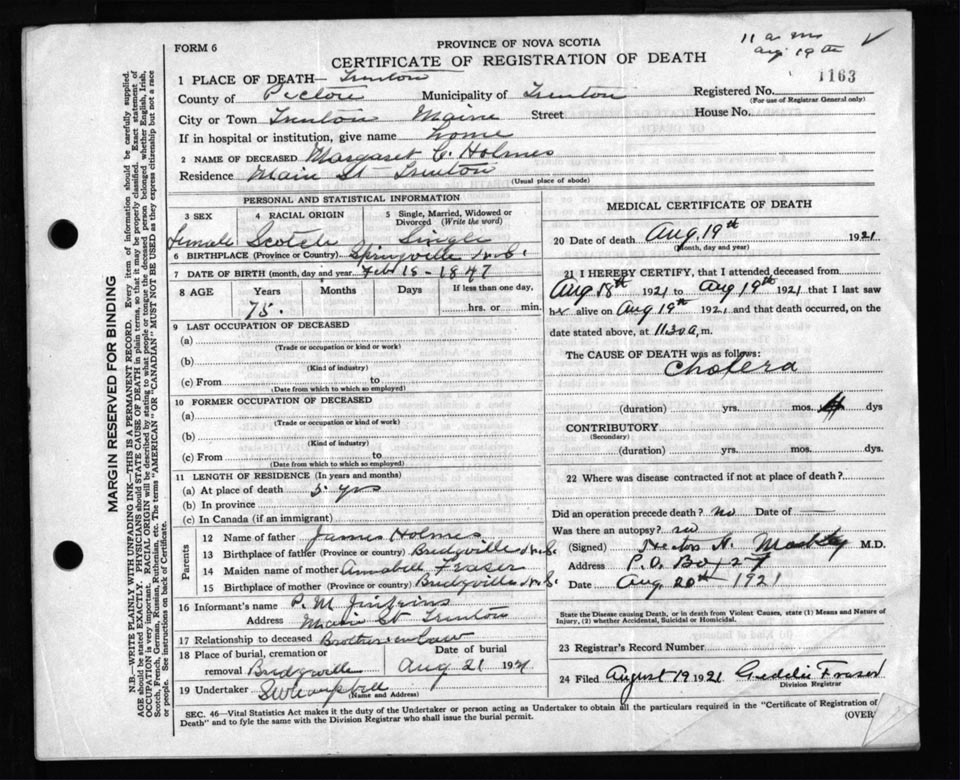 11 a m
Aug 19th
1163
FORM 6
PROVINCE OF NOVA SCOTIA
CERTIFICATE OF REGISTRATION OF DEATH
1 PLACE OF DEATH— Trenton
County of Pictou Municipality of Trenton Registered No.
(For use of Registrar General only)
City or Town Trenton Maine Street House No.
If in hospital or institution, give name home
2 NAME OF DECEASED Margaret C. Holmes
Residence Main St Trenton
(Usual place of abode)
PERSONAL AND STATISTICAL INFORMATION
3 SEX 4 RACIAL ORIGIN 5 Single, Married, Widowed or Divorced (Write the word)
Female Scotch Single
6 BIRTHPLACE (Province or Country) Springville N.S.
7 DATE OF BIRTH (month, day and year) Feb 18-1847
8 AGE Years Months Days If less than one day,
75. hrs. or min.
9 LAST OCCUPATION OF DECEASED
(a)
(Trade or occupation or kind or work)
(b)
(Kind of industry)
(c) From to
(Date from which to which so employed)
10 FORMER OCCUPATION OF DECEASED
(a)
(Trade or occupation or kind of work)
(b)
(Kind of industry)
(c) From to
(Date from which to which so employed)
11 LENGTH OF RESIDENCE (In years and months)
(a) At place of death 5 yrs
(b) In province
(c) In Canada (if an immigrant)
Parents
12 Name of father James Holmes
13 Birthplace of father (Province or country) Bridgville N.S.
14 Maiden name of mother Annabell Fraser
15 Birthplace of mother (Province or country) Bridgville N.S.
16 Informant's name P. M.
Address Main St Trenton
17 Relationship to deceased Brother in law
18 Place of burial, cremation or Date of burial
removal Bridgville Aug 21 1921
19 Undertaker
(Name and Address)
MEDICAL CERTIFICATE OF DEATH
20 Date of death Aug. 19th 1921
(Month, day and year)
21 I HEREBY CERTIFY, that I attended deceased from
Aug 18th 1921 to Aug 19th 1921 that I last saw
her alive on Aug 19th 1921 and that death occurred, on the
date stated above, at 11.30 a, m.
The CAUSE OF DEATH was as follows:
Cholera
(duration) yrs. mos. dys
CONTRIBUTORY
(Secondary)
(duration) yrs. mos. dys.
22 Where was disease contracted if not at place of death?
Did an operation precede death? no Date of —
Was there an autopsy? no
(Signed) M.D.
Address P.O. Box 27
Date Aug. 20th 1921
State the Disease causing Death, or in death from Violent Causes, state (1) Means and Nature of
Injury, (2) whether Accidental, Suicidal or Homicidal.
23 Registrar's Record Number
24 Filed August 19 1921 Fraser
Division Registrar
SEC. 46—Vital Statistics Act makes it the duty of the Undertaker or person acting as Undertaker to obtain all the particulars required in the "Certificate of Registration of
Death" and to fyle the same with the Division Registrar who shall issue the burial permit.
(OVER)
MARGIN RESERVED FOR BINDING
N.B.—WRITE PLAINLY WITH UNFADING INK—THIS IS A PERMANENT RECORD. Every item of information should be carefully supplied.
AGE should be stated EXACTLY. PHYSICIANS should STATE CAUSE OF DEATH in plain terms, so that it may be properly classified. Exact statement of
OCCUPATION is very important. RACIAL ORIGIN will be described by stating to what people or tongue the deceased person belonged whether English, Irish,
Scotch, French, German, Russian, Ruthenian, etc. The terms "AMERICAN" OR "CANADIAN" MUST NOT BE USED as they express citizenship but not a race
or people. See instructions on back of Certificate.